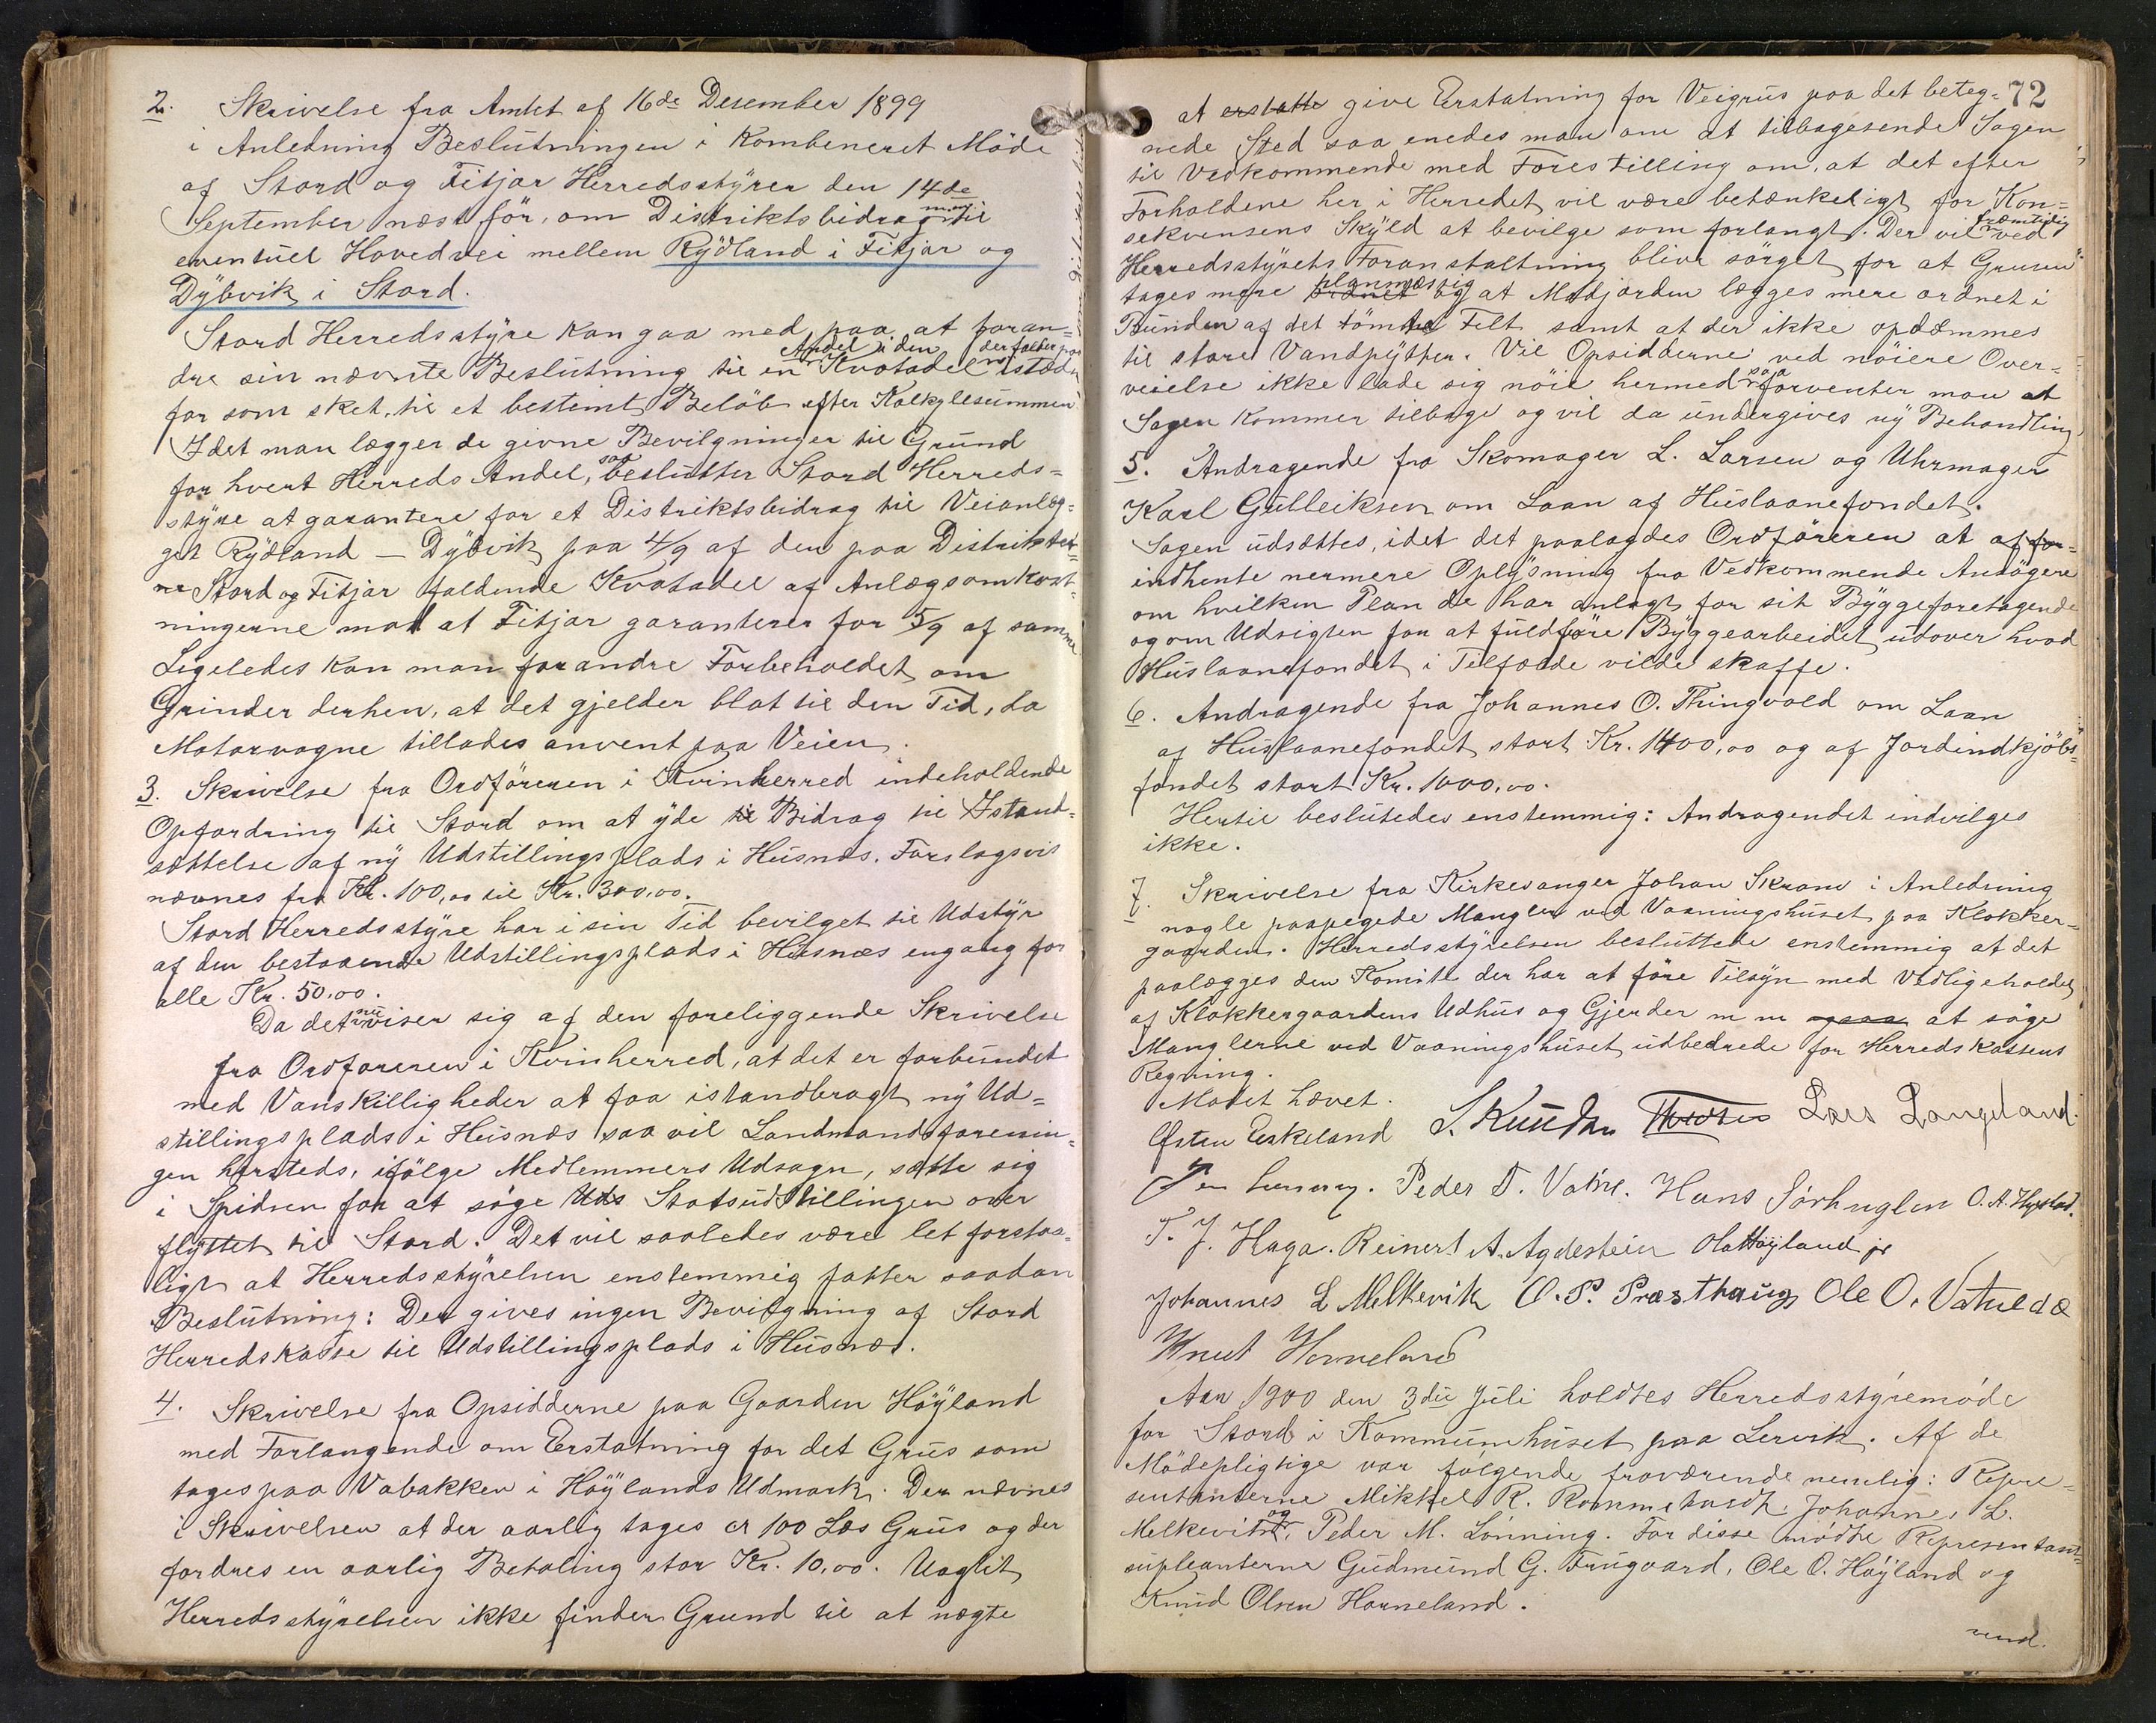 2. Skrivelse fra Amtet af 16de Desember 1899
i Anledning Beslutningen i Kombeneret Möde
af Stord og Fitjar Herredsstyrer den 14de
September næst för, om Distriktsbidrag m.m. til
eventuel Hovedvei mellem Rydland i Fitjar og
Dybvik i Stord.
Stord Herredsstyre kan gaa med paa at foran=
dre sin nævnte Beslutning til en Andel i den Kvotadel der falder paa istæden
for som sket, til et bestemt Belöb efter Kalkylesummen
Idet man lægger de givne Bevilgninger til Grund
for hvert Herreds Andel, saa beslutter Stord Herreds=
styre at garantere for et Distriktsbidrag til Veianlæg=
get Rydland — Dybvik paa 4/9 af den paa Distrikter=
ne Stord og Fitjar faldende Kvotadel af Anlægsomkost=
ningerne mod at Fitjar garanterer for 5/9 af samme
Ligeledes kan man forandre Forbeholdet om
Grinder derhen, at det gjelder blot til den Tid, da
Motorvogne tillades anvent paa Veien.
3. Skrivelse fra Ordföreren i Kvinherred indeholdende
Opfordring til Stord om at yde til Bidrag til Istand=
sættelse af ny Udstillingsplads i Husnæs. Forslagsvis
nævnes fra Kr. 100,00 til Kr. 300,00.
Stord Herredsstyre har i sin Tid bevilget til Udstyr
af den bestaaende Udstillingsplads i Husnæs engang for
alle Kr. 50,00.
Da det nu viser sig af den foreliggende Skrivelse
fra Ordföreren i Kvinherred, at det er forbundet
med Vanskilligheder at faa istandbragt ny Ud=
stillingsplads i Husnæs saa vil Landmandsforenin=
gen hersteds, ifölge Medlemmers Udsagn, sætte sig
i Spidsen for at söge Uds Statsudstillingen over
flyttet til Stord. Det vil saaledes være let forstaa=
ligt at Herredsstyrelsen enstemmig fatter saadan
Beslutning: Der gives ingen Bevilgning af Stord
Herredskasse til Udstillingsplads i Husnæs.
4. Skrivelse fra Opsidderne paa Gaarden Höyland
med Forlangende om Erstatning for det Grus som
tages paa Vabakken i Höylands Udmark. Der nævnes
i Skrivelsen at der aarlig tages ca 100 Læs Grus og der
fordres en aarlig Betaling stor Kr. 10,00. Uagtet
Herredsstyrelsen ikke finder Grund til at nægte
72
at erstatte give Erstatning for Veigrus paa det beteg=
nede Sted saa enedes man om at tilbagesende Sagen
til Vedkommende med Forestilling om, at det efter
Forholdene her i Herredet vil være betænkeligt for Kon=
sekvensens Skyld at bevilge som forlangt. Der vil fremtidig ved
Herredsstyrets Foranstaltning blive sörget for at Grusen
tages mere ordnet planmæssig og at Madjorden lægges mere ordnet i
Bunden af det tömte Felt samt at der ikke opdæmmes
til store Vandpytter. Vil Opsidderne ved nöiere Over=
veielse ikke lade sig nöie hermed saa forventer man at
Sagen kommer tilbage og vil da undergives ny Behandling.
5. Andragende fra Skomager L. Larsen og Uhrmager
Karl Gulleiksen om Laan af Huslaanefondet.
Sagen udsættes, idet det paalagdes Ordföreren at af for=
indhente nermere Oplysning fra Vedkommende Ansögere
om hvilken Plan de har anlagt for sit Byggeforetagende
og om Udsigten for at fuldföre Byggearbeidet udover hvad
Huslaanefondet i Tilfælde vilde skaffe.
6. Andragende fra Johannes O. Thingvold om Laan
af Huslaanefondet stort Kr. 1400,00 og af Jordindkjöbs=
fondet stort Kr. 1000,00.
Hertil beslutedes enstemmig: Andragendet indvilges
ikke.
7. Skrivelse fra Kirkesanger Johan Skram i Anledning
nogle paapegede Mangler ved Vaaningshuset paa Klokker=
gaarden. Herredsstyrelsen besluttede enstemmig at det
paalægges den Komite der har at före Tilsyn med Vedligeholdet
af Klokkergaardens Udhus og Gjerder m m ogsaa at söge
Manglerne ved Vaaningshuset udbedrede for Herredskassens
Regning.
Mödet hævet.
Östen Eskeland S. Kundsen Lars Langeland.
Peder T. Vatne. Hans Sörhuglen O. A. Hystad.
T. J. Haga. Reinert A. Agdestein Ola Höyland jr
Johannes L Melkevik O. P. Præsthaug Ole O. Vatnedæ
Knut Horneland
Aar 1900 den 3die Juli holdtes Herredsstyremöde
for Stord i Kommunehuset paa Lervik. Af de
Mödepligtige var fölgende fraværende nemlig: Repre=
sentanterne Mikkel R. Rommetvedt, Johannes L.
Melkevik og Peder M. Lönning. For disse mödte Representant=
supleanterne Gudmund G. Frugaard, Ole O. Höyland og
Knud Olsen Horneland.
vend.